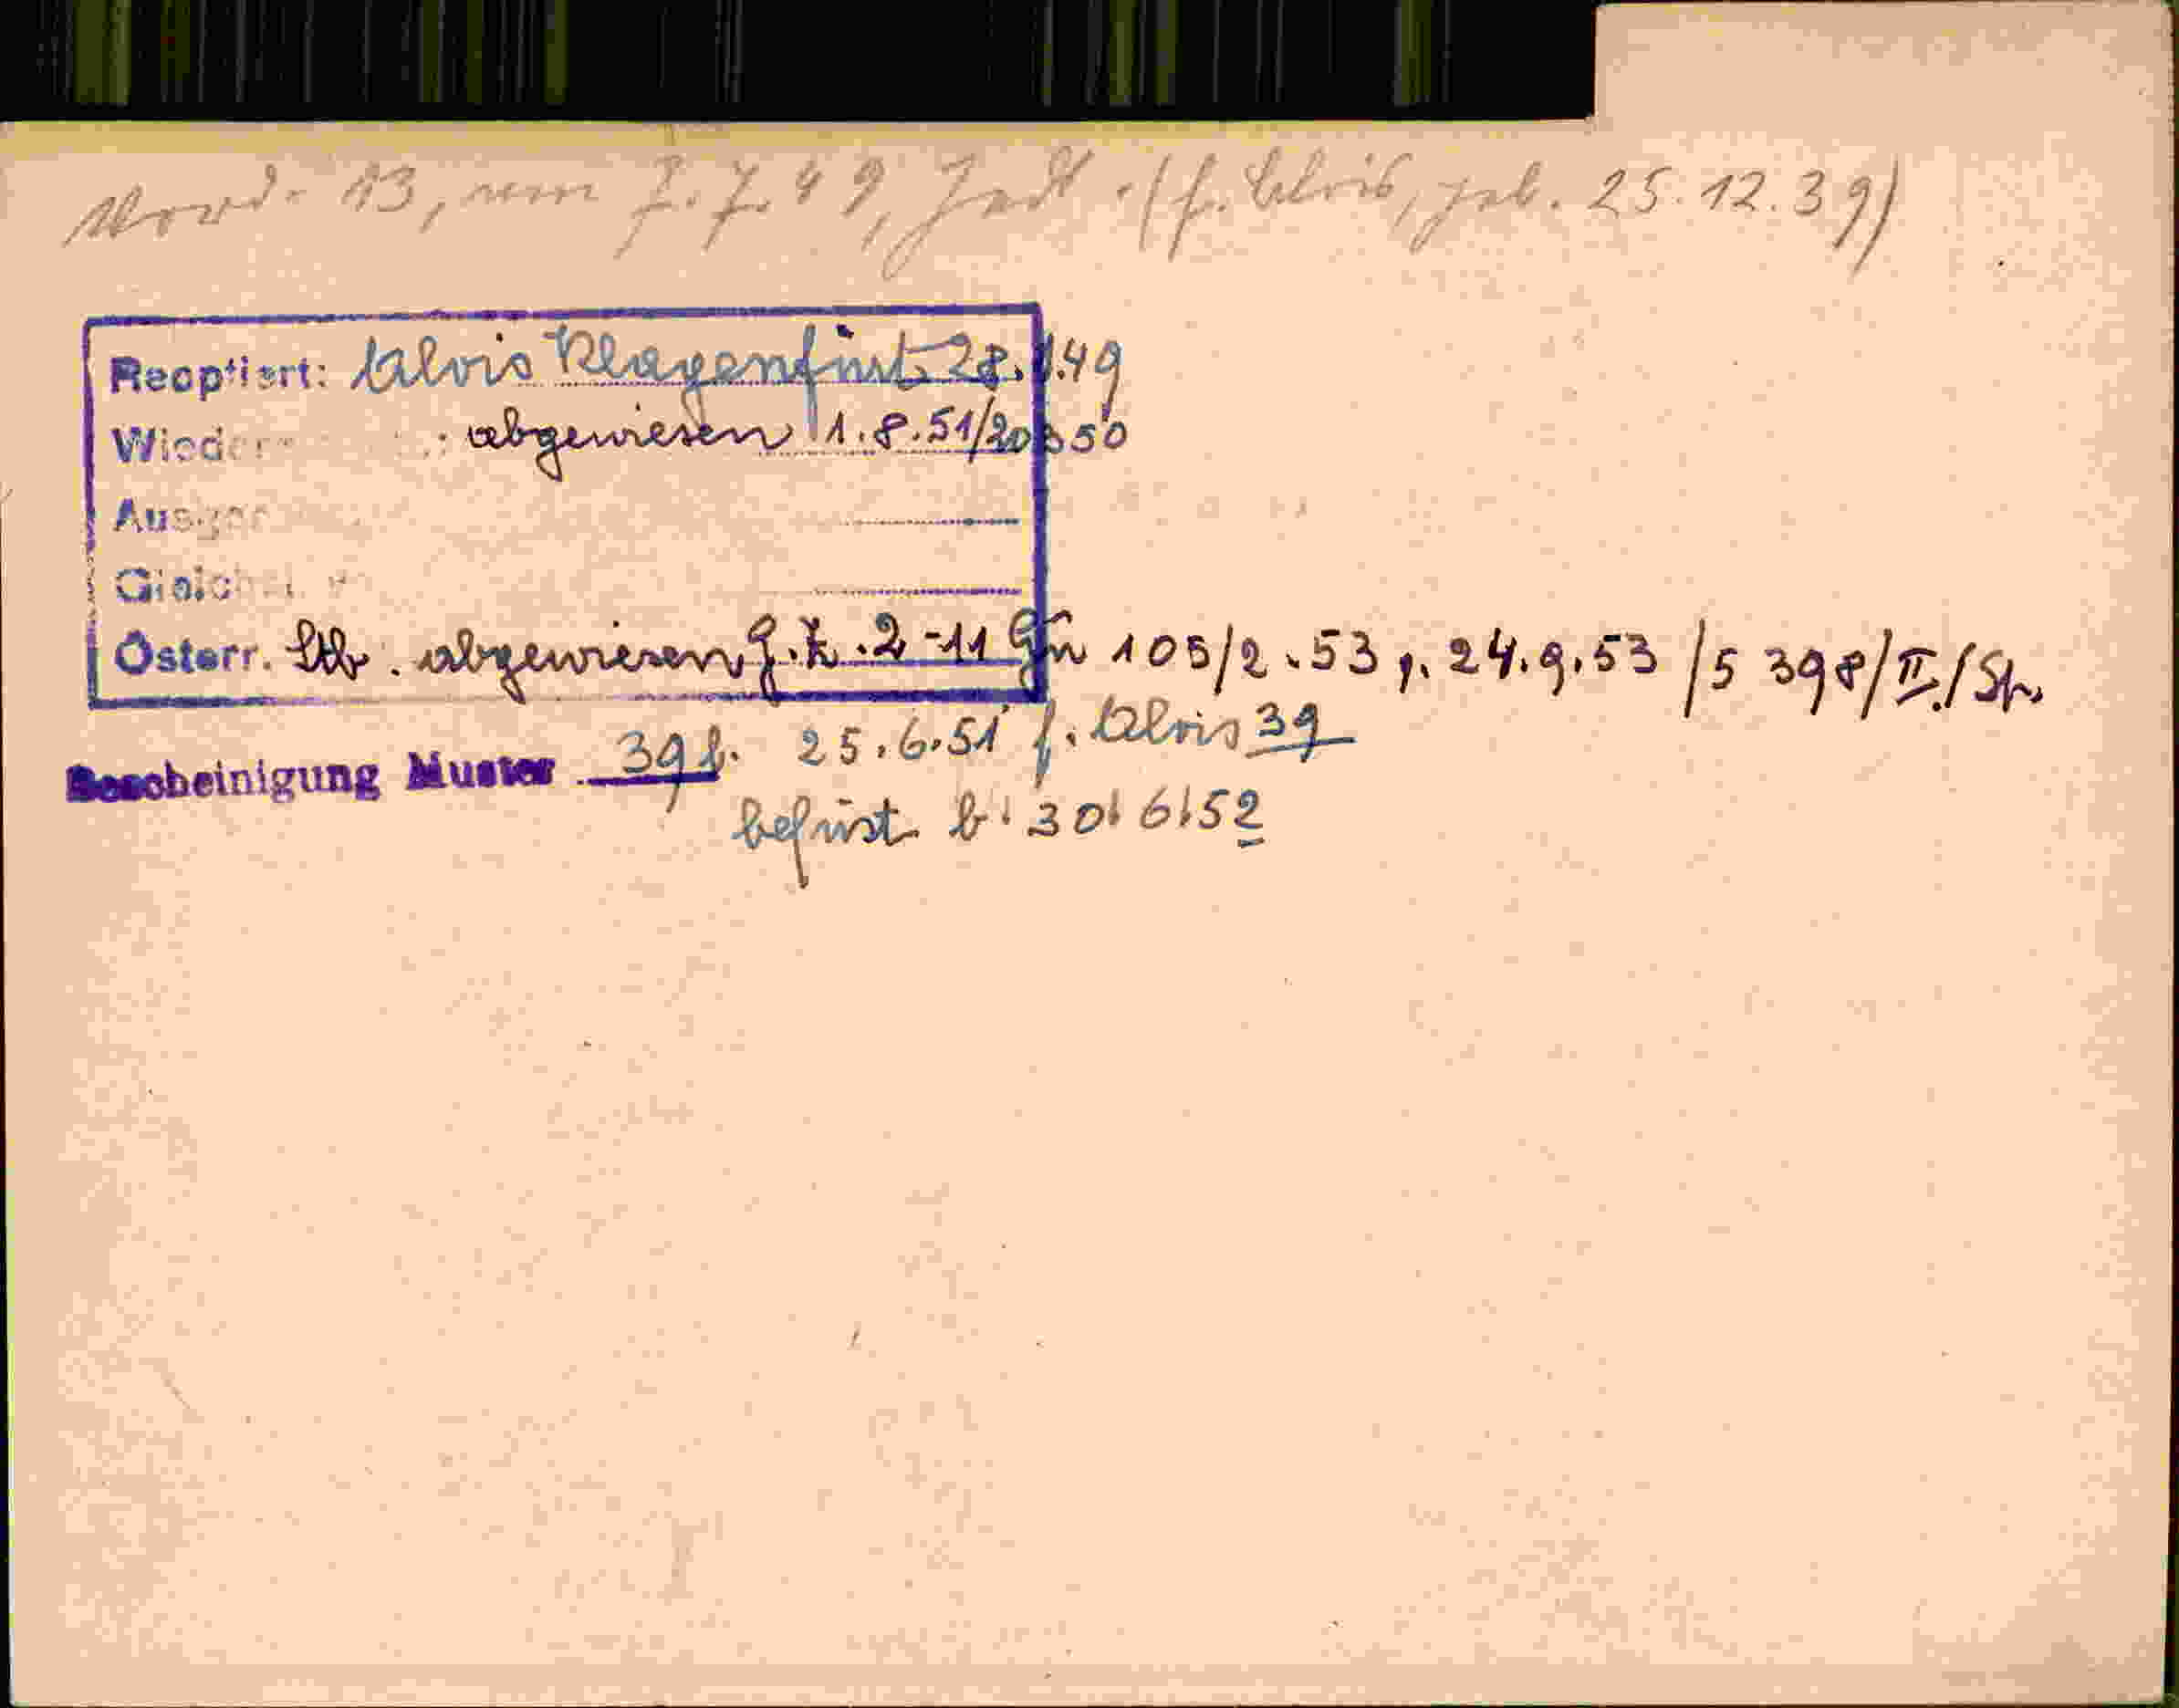 13, vom 7.7.49, (f. Alois, geb. 25.12.39)
Reoptiert: Alois Klagenfurt 28. .49
Wieder : abgewiesen 1.8.51/20350
Österr. Stb. abgewiesen G.Z. 2-11 Gfn 105/2.53 v. 24.9.53 /5 398/II./St.
Bescheinigung Muster 39 f. 25.6.51 f. Alois 39
befrist. b. 30.6.52